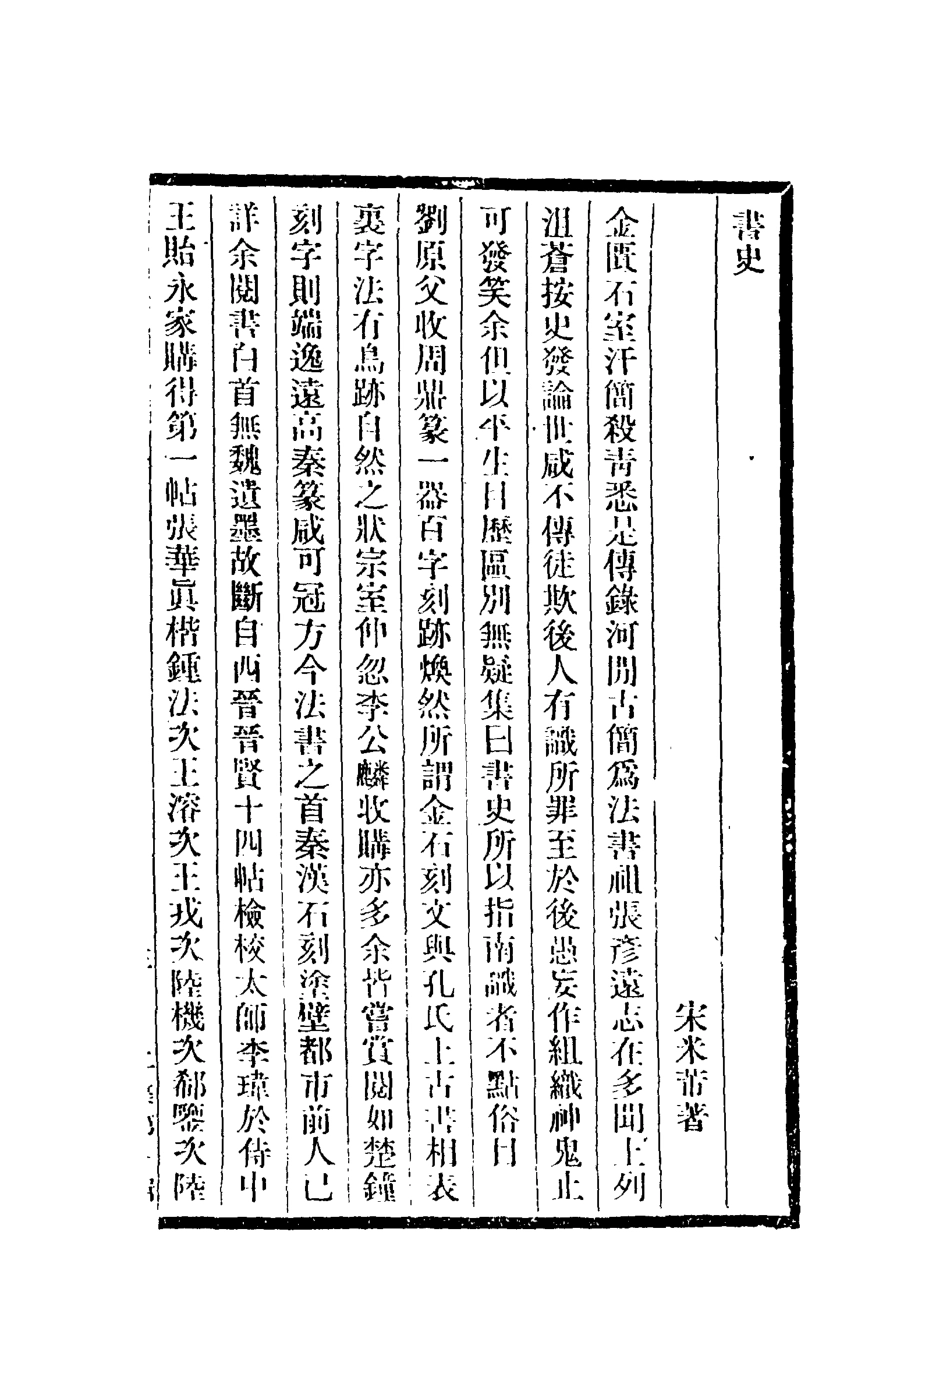 書史
宋米芾著
金匱石室汗簡殺青悉是傳錄河間古簡爲法書祖張彥遠志在多聞上列
沮蒼按史發論世咸不傳徒欺後人有識所罪至於後愚妄作組織神鬼止
可發笑余但以平生目歷區別無疑集曰書史所以指南識者不點俗目
劉原父收周鼎篆一器百字刻跡煥然所謂金石刻文與孔氏上古書相表
裏字法有鳥跡自然之狀宗室仲忽李公麟收購亦多余皆嘗賞閱如楚鐘
刻字則端逸遠高秦篆咸可冠方今法書之首秦漢石刻塗壁都市前人已
詳余閱書白首無魏遺墨故斷自西晉晉賢十四帖檢校太師李瑋於侍中
王貽永家購得第一帖張華眞楷鍾法次王溶次王戎次陸機次郗鑒次陸